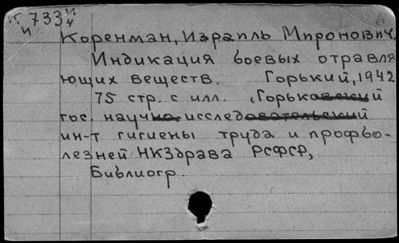 15/И 733 11/4
Коренман, Израиль Миронович.
Индикация боевых отравля
ющих веществ. Горький, 1942
75 стр. с илл. (Горьковский
гос. научно-исследовательский
ин-т гигиены труда и профбо-
лезней НКЗдрава РСФСР,
Библиогр.